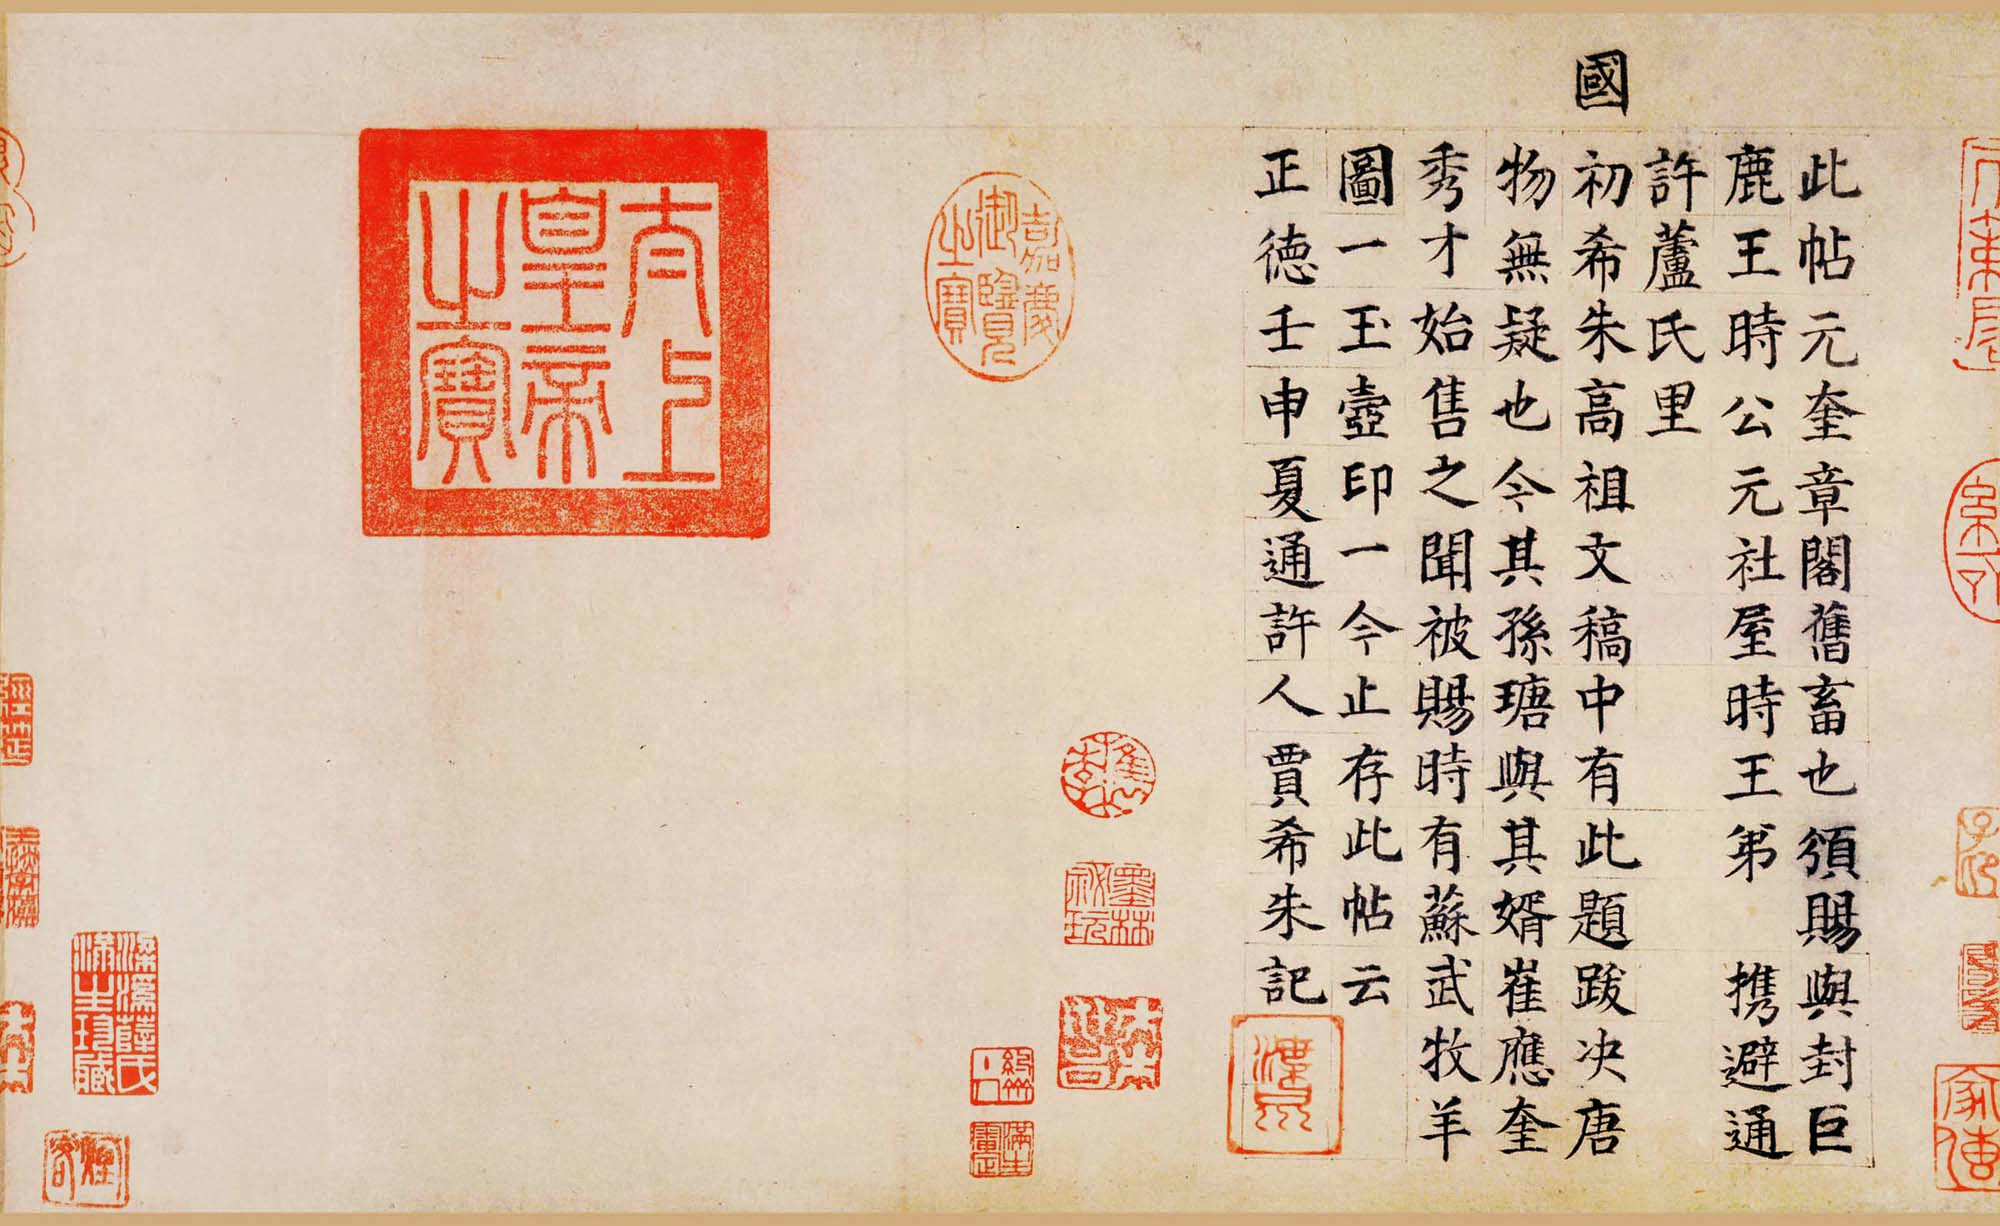 此帖元奎章閣舊畜也須賜與封巨
鹿王時公元社屋時王第携避通
許蘆氏里
國
初希朱高祖文稿中有此題跋决唐
物無疑也今其孫瑭與其婿崔應奎
秀才始售之聞被賜時有蘇武牧羊
圖一玉壺印一今止存此帖云
正德壬申夏通許人賈希朱記
嘉慶御覽之寶
太上皇帝之寶
墨林秘玩